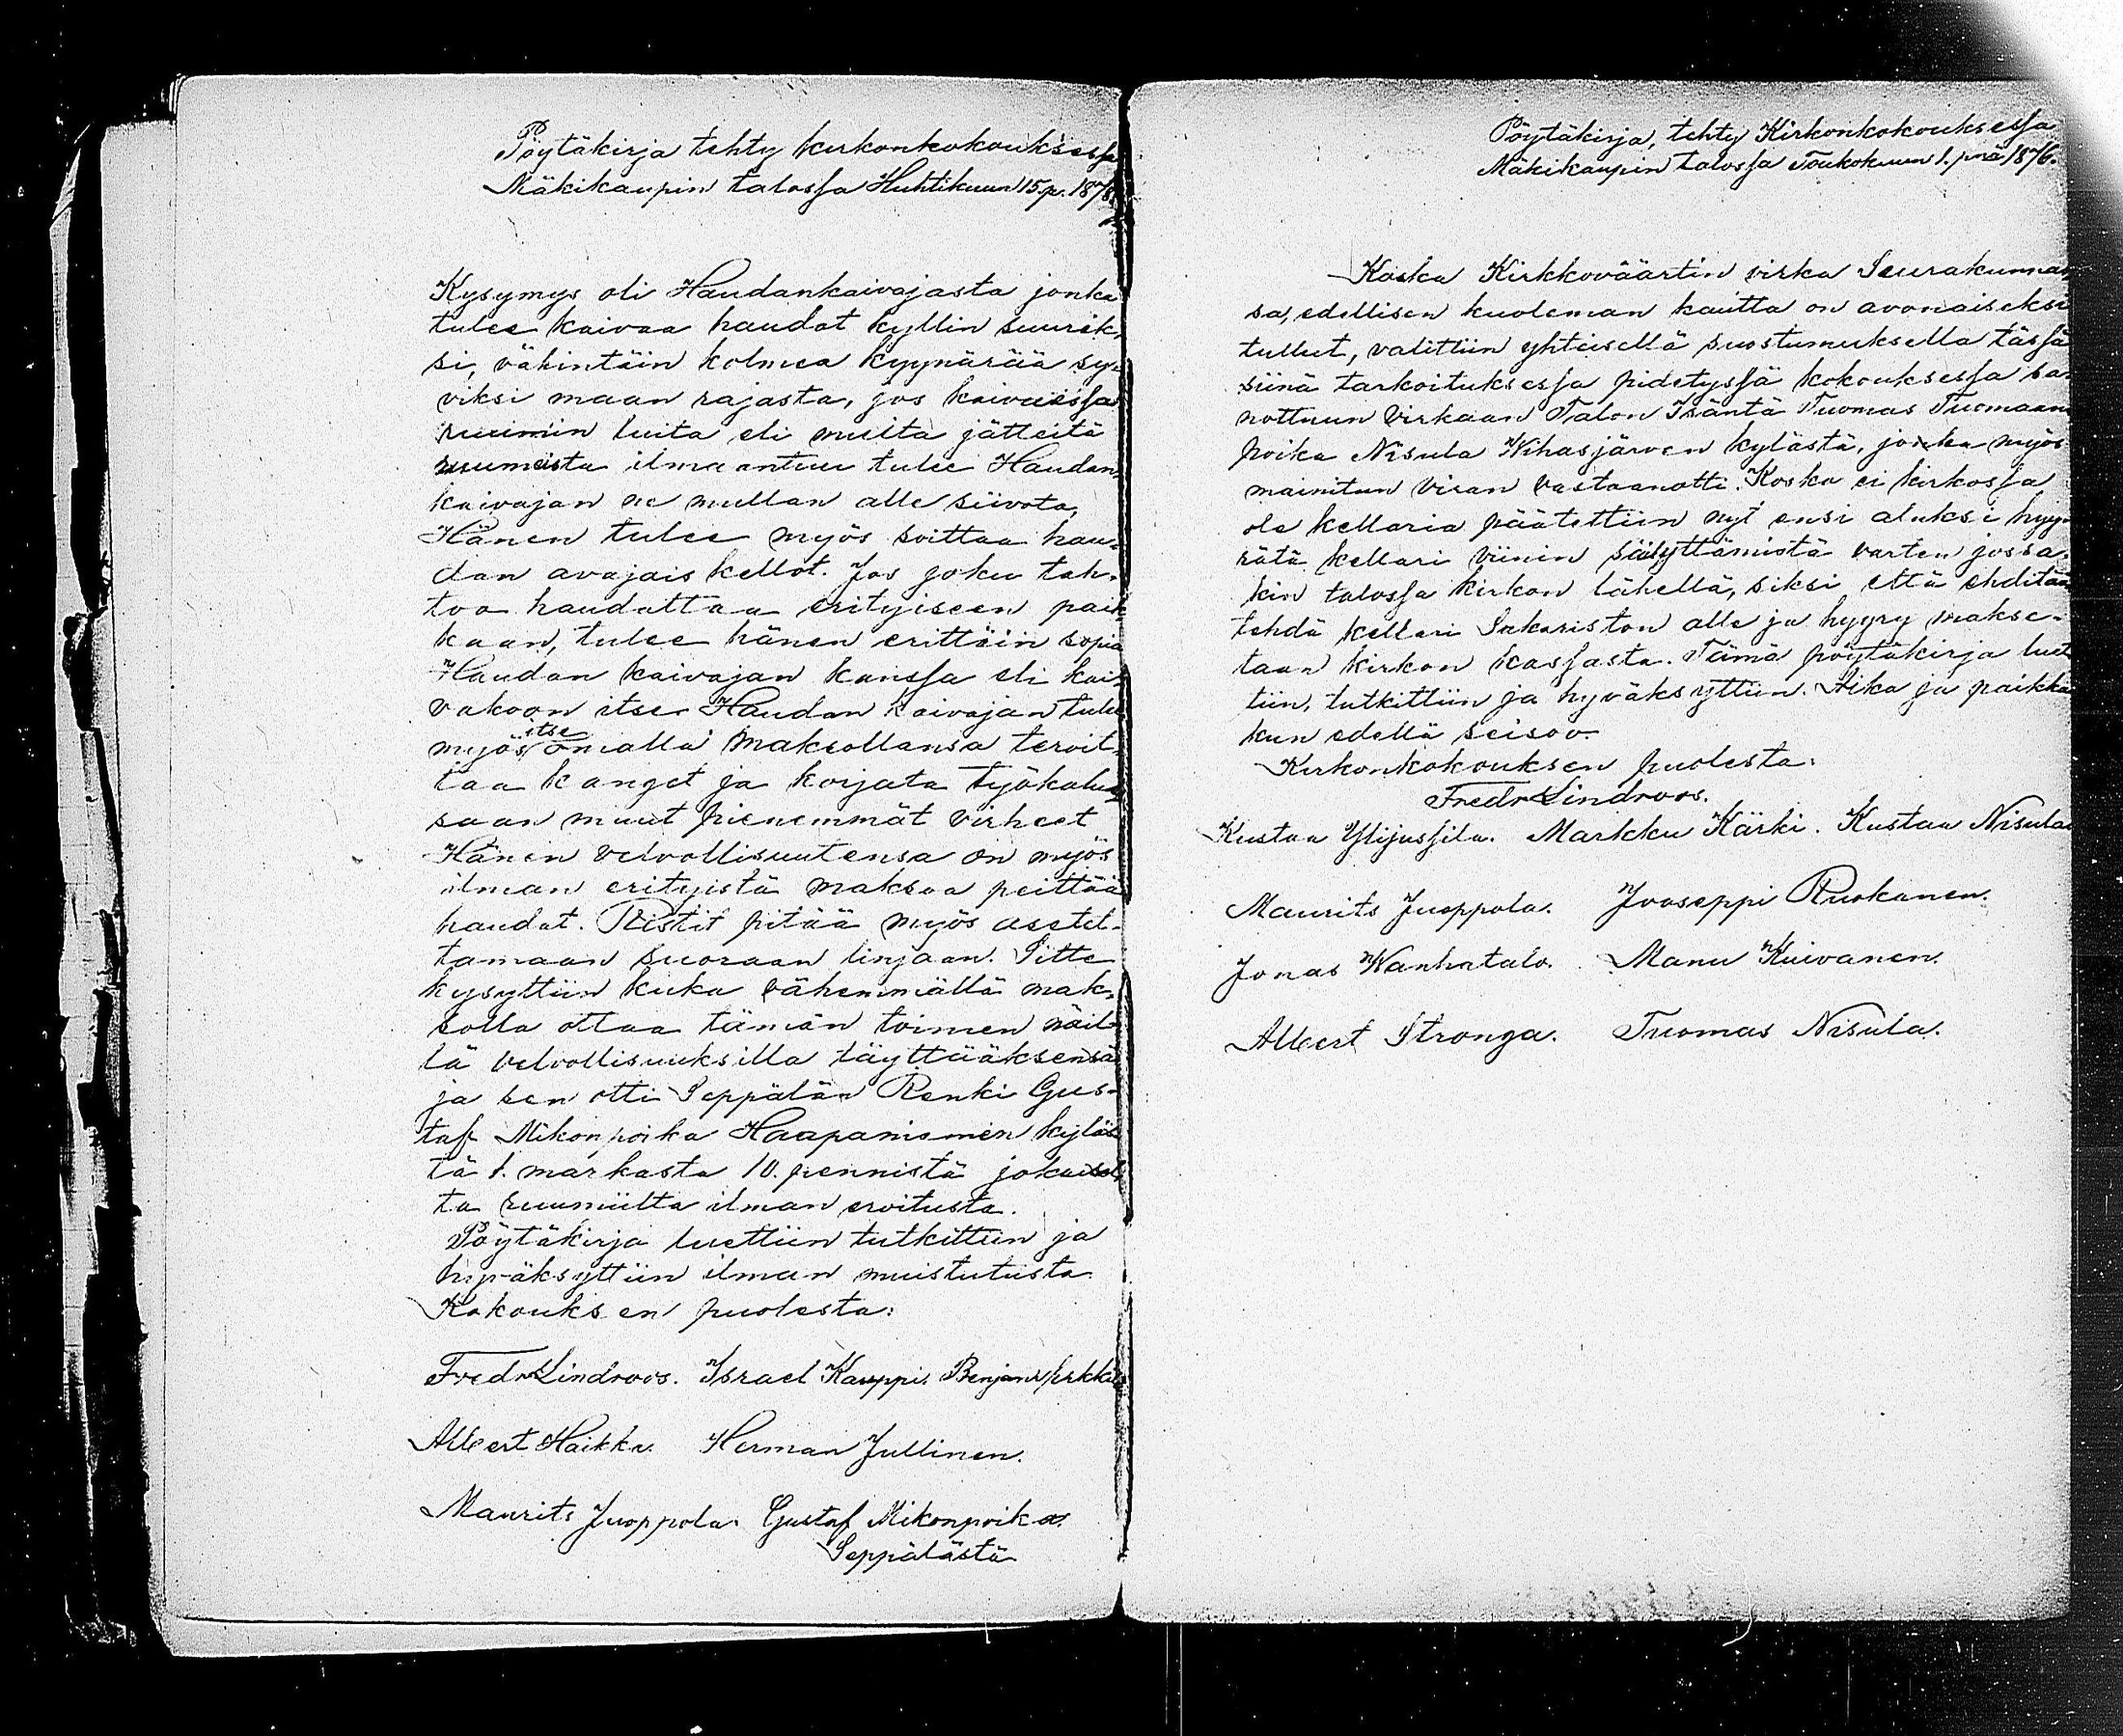 Pöytäkirja tehty kirkonkokouksessa
Mäkikaupin talossa Huhtikuun 15 p. 1878
Kysymys oli Haudankaivajasta jonka
tulee kaivaa haudat kyllin suurik-
si, vähintäin kolmea kyynärää sy-
viksi maan rajasta, jos kaivaissa
ruumin luita eli muita jätteitä
ruumista ilmaantuu tulee Haudan
kaivajan ne mullan alle siivota,
Hänen tulee myös soittaa hau-
dan avajais kellot. Jos joku tah-
too haudattaa erityiseen paik
kaan, tulee hänen erittäin sopia
Haudan kaivajan kanssa eli kai-
vakoon itse. Haudan kaivajan tulee
myös itse omalla maksollansa teroit-
taa kanget ja korjata työkalus
saan muut pienemmät virheet
Hänen velvollisuutensa on myös
ilman erityistä maksoa peittää
haudat. Ristit pitää myös asetet-
tamaan suoraan linjaan. Sitte
kysyttiin kuka vähemmällä mak-
solla ottaa tämän toimen näil-
lä velvollisuuksilla täyttääksensä
ja sen otti Seppälän Renki Gus-
taf Mikonpoika Haapanismen kyläs
tä 1. markasta 10. pennistä jokaisel
ta ruumiilta ilman eroitusta.
Pöytäkirja luettiin tutkittiin ja
hyväksyttiin ilman muistutusta
Kokouksen puolesta:
Fredr Lindroos. Israel Kauppi. Benjam Erkkilä
Albert Haikka. Herman Jullinen.
Maurits Juoppola. Gustaf Mikonpoika.
Seppälästä
Pöytäkirja, tehty Kirkonkokouksessa
Mäkikaupin talossa Toukokuun 1. pnä 1876.
Koska Kirkkoväärtin virka Seurakunnas
sa, edellisen kuoleman kautta on avonaiseksi
tullut, valittiin yhteisellä suostumuksella tässä
siinä tarkoituksessa pidetyssä kokouksessa sa-
nottuun virkaan Talon Isäntä Tuomas Tuomaan
poika Nisula Wihasjärven kylästä, jonka myös
mainitun viran vastaanotti. Koska ei kirkossa
ole kellaria päätettiin nyt ensi aluksi hyy-
rätä kellari viinin säilyttämistä varten jossa-
kin talossa kirkon lähellä, siksi että ehditään
tehdä kellari Sakariston alle ja hyyry makse-
taan kirkon kassasta. Tämä pöytäkirja luet
tiin, tutkittiin ja hyväksyttiin. Aika ja paikka
kun edellä seisoo.
Kirkonkokouksen puolesta:
Fredr Lindroos.
Kustaa Ylijussila. Markku Kärki. Kustaa Nisula
Maurits Juoppola. Jooseppi Ruokanen.
Jonas Wanhatalo. Manu Kuivanen.
Albert Stronga. Tuomas Nisula.